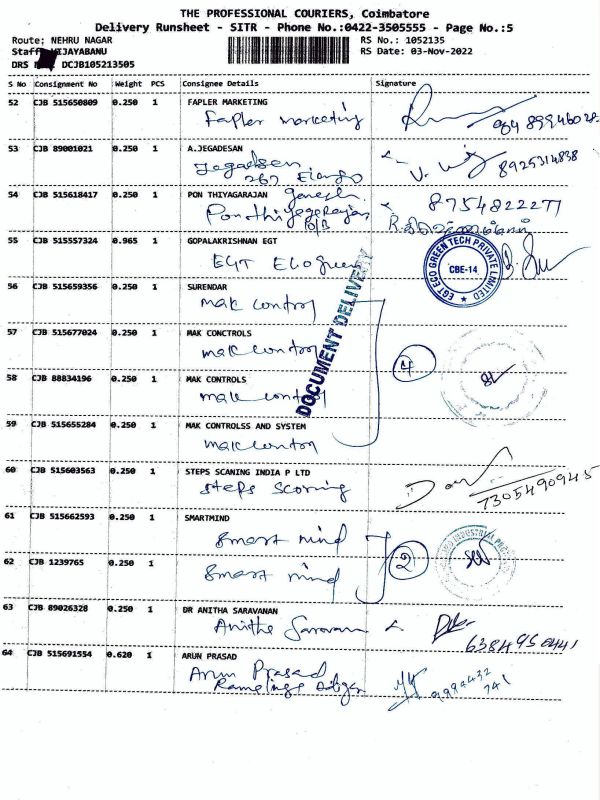 THE PROFESSIONAL COURIERS, Coimbatore
Delivery Runsheet - SITR - Phone No.:0422-3505555 - Page No.:5
Route: NEHRU NAGAR RS No.: 1052135
Staff: VIJAYABANU RS Date: 03-Nov-2022
DRS DCJB105213505
S No Consignment No Weight PCS Consignee Details Signature
52 CJB 515650809 0.250 1 FAPLER MARKETING
Fapler marketing
53 CJB 89001021 0.250 1 A.JEGADESAN
Jegadsen 8925314838
267 Elango
54 CJB 515618417 0.250 1 PON THIYAGARAJAN ganesh 8754822277
Ponthiyagarajan
55 CJB 515557324 0.965 1 GOPALAKRISHNAN EGT
EGT Ecogreen
EGT ECO GREEN TECH PRIVATE LIMITED
CBE-14
56 CJB 515659356 0.250 1 SURENDAR
mak control
DOCUMENT DELIVERY
57 CJB 515677024 0.250 1 MAK CONCTROLS
mak control
4
58 CJB 88834196 0.250 1 MAK CONTROLS
mak control
59 CJB 515655284 0.250 1 MAK CONTROLSS AND SYSTEM
mak control
60 CJB 515603563 0.250 1 STEPS SCANING INDIA P LTD
steps scaning 7305490945
61 CJB 515662593 0.250 1 SMARTMIND
Smart mind
2
62 CJB 1239765 0.250 1
Smart mind
63 CJB 89026328 0.250 1 DR ANITHA SARAVANAN
Anitha Saravan 6384950441
64 CJB 515691554 0.620 1 ARUN PRASAD
Arun Prasad 9994432
741